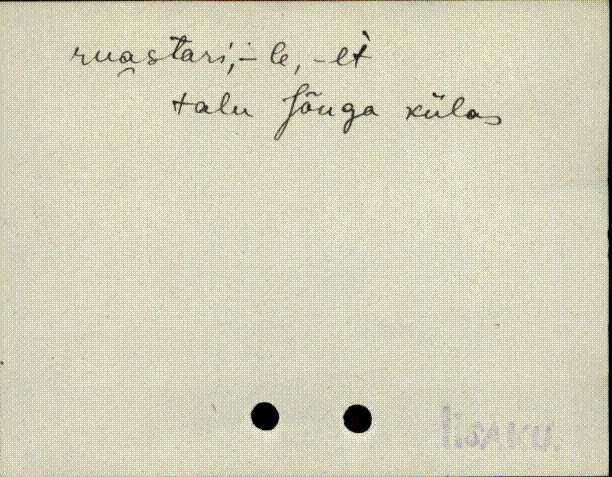 ruastari, -le, -lt
talu Jõuga külas
Iisaku.